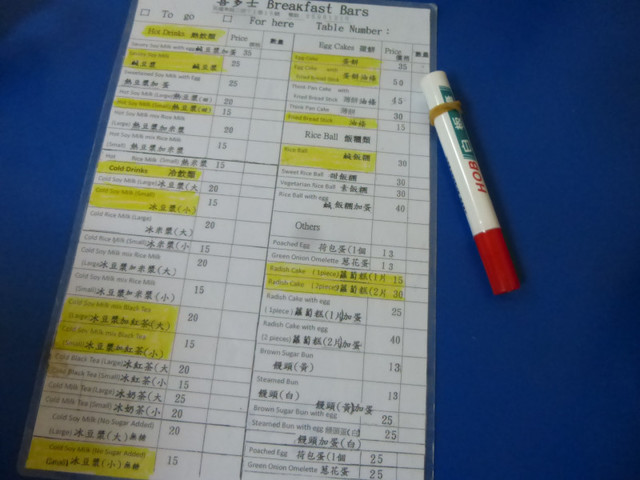 喜多士 Breakfast Bars
To go
For here Table Number：
Hot Drinks 熱飲類 Price 數量
Savory Soy Milk with egg 鹹豆漿加蛋 35
Savory Soy Milk
鹹豆漿 鹹豆漿 25
Sweetened Soy Milk with Egg
熱豆漿加蛋 25
熱豆漿(大) 20
Hot Soy Milk (Small) 熱豆漿(小) 15
Hot Soy Milk mix Rice Milk
(Large) 熱豆漿加米漿 20
Hot Soy Milk mix Rice Milk
(Small) 熱豆漿加米漿 15
Hot Rice Milk (Small) 熱米漿 15
Cold Drinks 冷飲類
Cold Soy Milk (Large) 冰豆漿(大) 20
Cold Soy Milk (Small)
冰豆漿(小) 15
Cold Rice Milk (Large)
冰米漿(大) 20
Cold Rice Milk (Small) 冰米漿(小) 15
Cold Soy Milk mix Rice Milk
(Large) 冰豆漿加米漿(大) 20
Cold Soy Milk mix Rice Milk
(Small) 冰豆漿加米漿(小) 15
Cold Soy Milk mix Black Tea
(Large) 冰豆漿加紅茶(大) 20
Cold Soy Milk mix Black Tea
(Small) 冰豆漿加紅茶(小) 15
Cold Black Tea (Large) 冰紅茶(大 20
Cold Black Tea (Small) 冰紅茶(小 15
Cold Milk Tea (Large) 冰奶茶(大 25
Cold Milk Tea (Small) 冰奶茶(小 20
Cold Soy Milk (No Sugar Added)
(Large) 冰豆漿(大)無糖 20
Cold Soy Milk (No Sugar Added)
(Small) 冰豆漿(小)無糖 15
Egg Cakes 蛋餅 Price 數量
Egg Cake 蛋餅 35
Egg Cake with
Fried Bread Stick 蛋餅油條 50
Thick Pan Cake with
Fried Bread Stick 油條 45
Thick Pan Cake 30
Fried Bread Stick 油條 15
Rice Ball 飯糰類
Rice Ball
鹹飯糰 30
Sweet Rice Ball 甜飯糰 30
Vegetarian Rice Ball 素飯糰 30
Rice Ball with egg
鹹飯糰加蛋 40
Others
Poached Egg 荷包蛋(1個 13
Green Onion Omelette 蔥花蛋 13
Radish Cake (1piece) 蘿蔔糕(1片 15
Radish Cake (2piece) 蘿蔔糕(2片 30
Radish Cake with egg
(1piece) 蘿蔔糕(1片)加蛋 25
Radish Cake with egg
(2 pieces) 蘿蔔糕(2片)加蛋 40
Brown Sugar Bun
饅頭(黃) 13
Steamed Bun
饅頭(白) 13
饅頭(黃)加蛋
Brown Sugar Bun with egg 25
Steamed Bun with egg
饅頭加蛋(白) 25
Poached Egg 荷包蛋(1個 25
Green Onion Omelette 蔥花蛋 25
白板
HOR